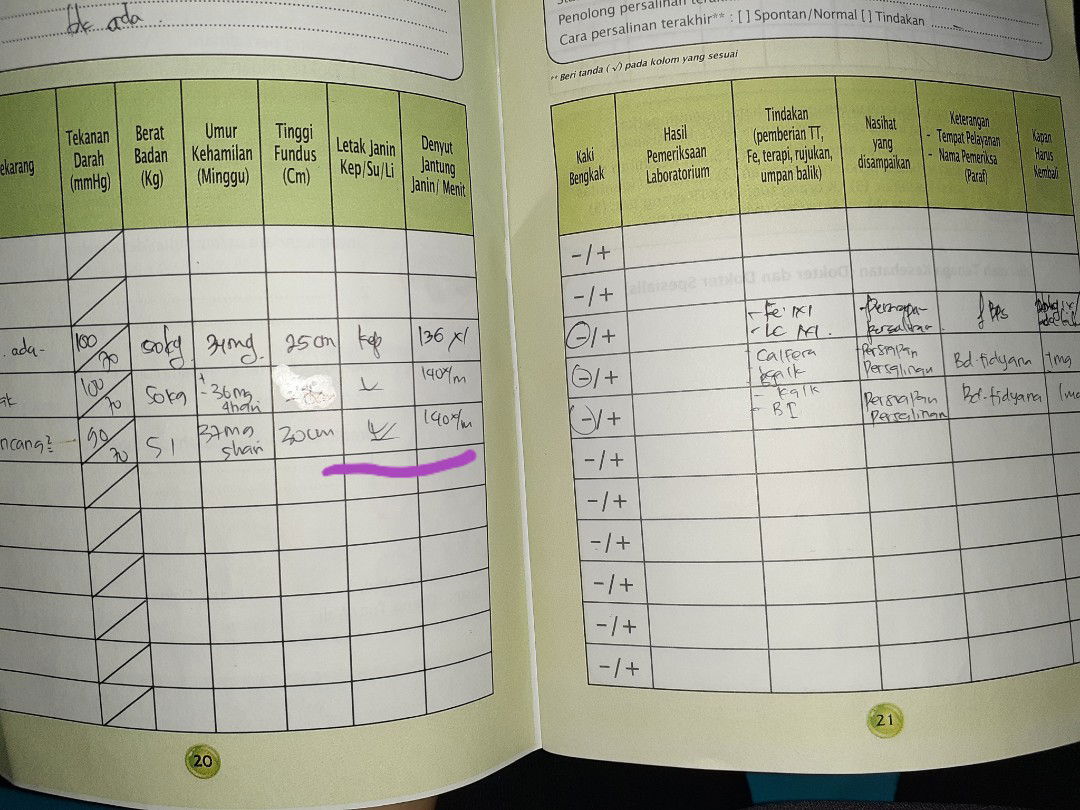 bk ada
Penolong persalinan
Cara persalinan terakhir** : [ ] Spontan/Normal [ ] Tindakan
** Beri tanda (√) pada kolom yang sesuai
ekarang
Tekanan
Darah
(mmHg)
Berat
Badan
(Kg)
Umur
Kehamilan
(Minggu)
Tinggi
Fundus
(Cm)
Letak Janin
Kep/Su/Li
Denyut
Jantung
Janin/ Menit
ada- 100/70 50kg 34mg 25cm kep 136 x/
100/70 50kg 36mg 4hari 140x/m
90/70 51 37mg 5hari 30cm 140x/m
20
Kaki
Bengkak
Hasil
Pemeriksaan
Laboratorium
Tindakan
(pemberian TT,
Fe, terapi, rujukan,
umpan balik)
Nasihat
yang
disampaikan
Keterangan
- Tempat Pelayanan
- Nama Pemeriksa
(Paraf)
Kapan
Harus
Kembali
-/+
-/+
-/+ - Fe 1x1
- Lc 1x1.
-/+ Calfera
kalk
Persiapan
Persalinan
Bd. fidyana 1mg
-/+ - kalk
- B1
Persiapan
Persalinan
Bd. fidyana
-/+
-/+
-/+
-/+
-/+
-/+
21